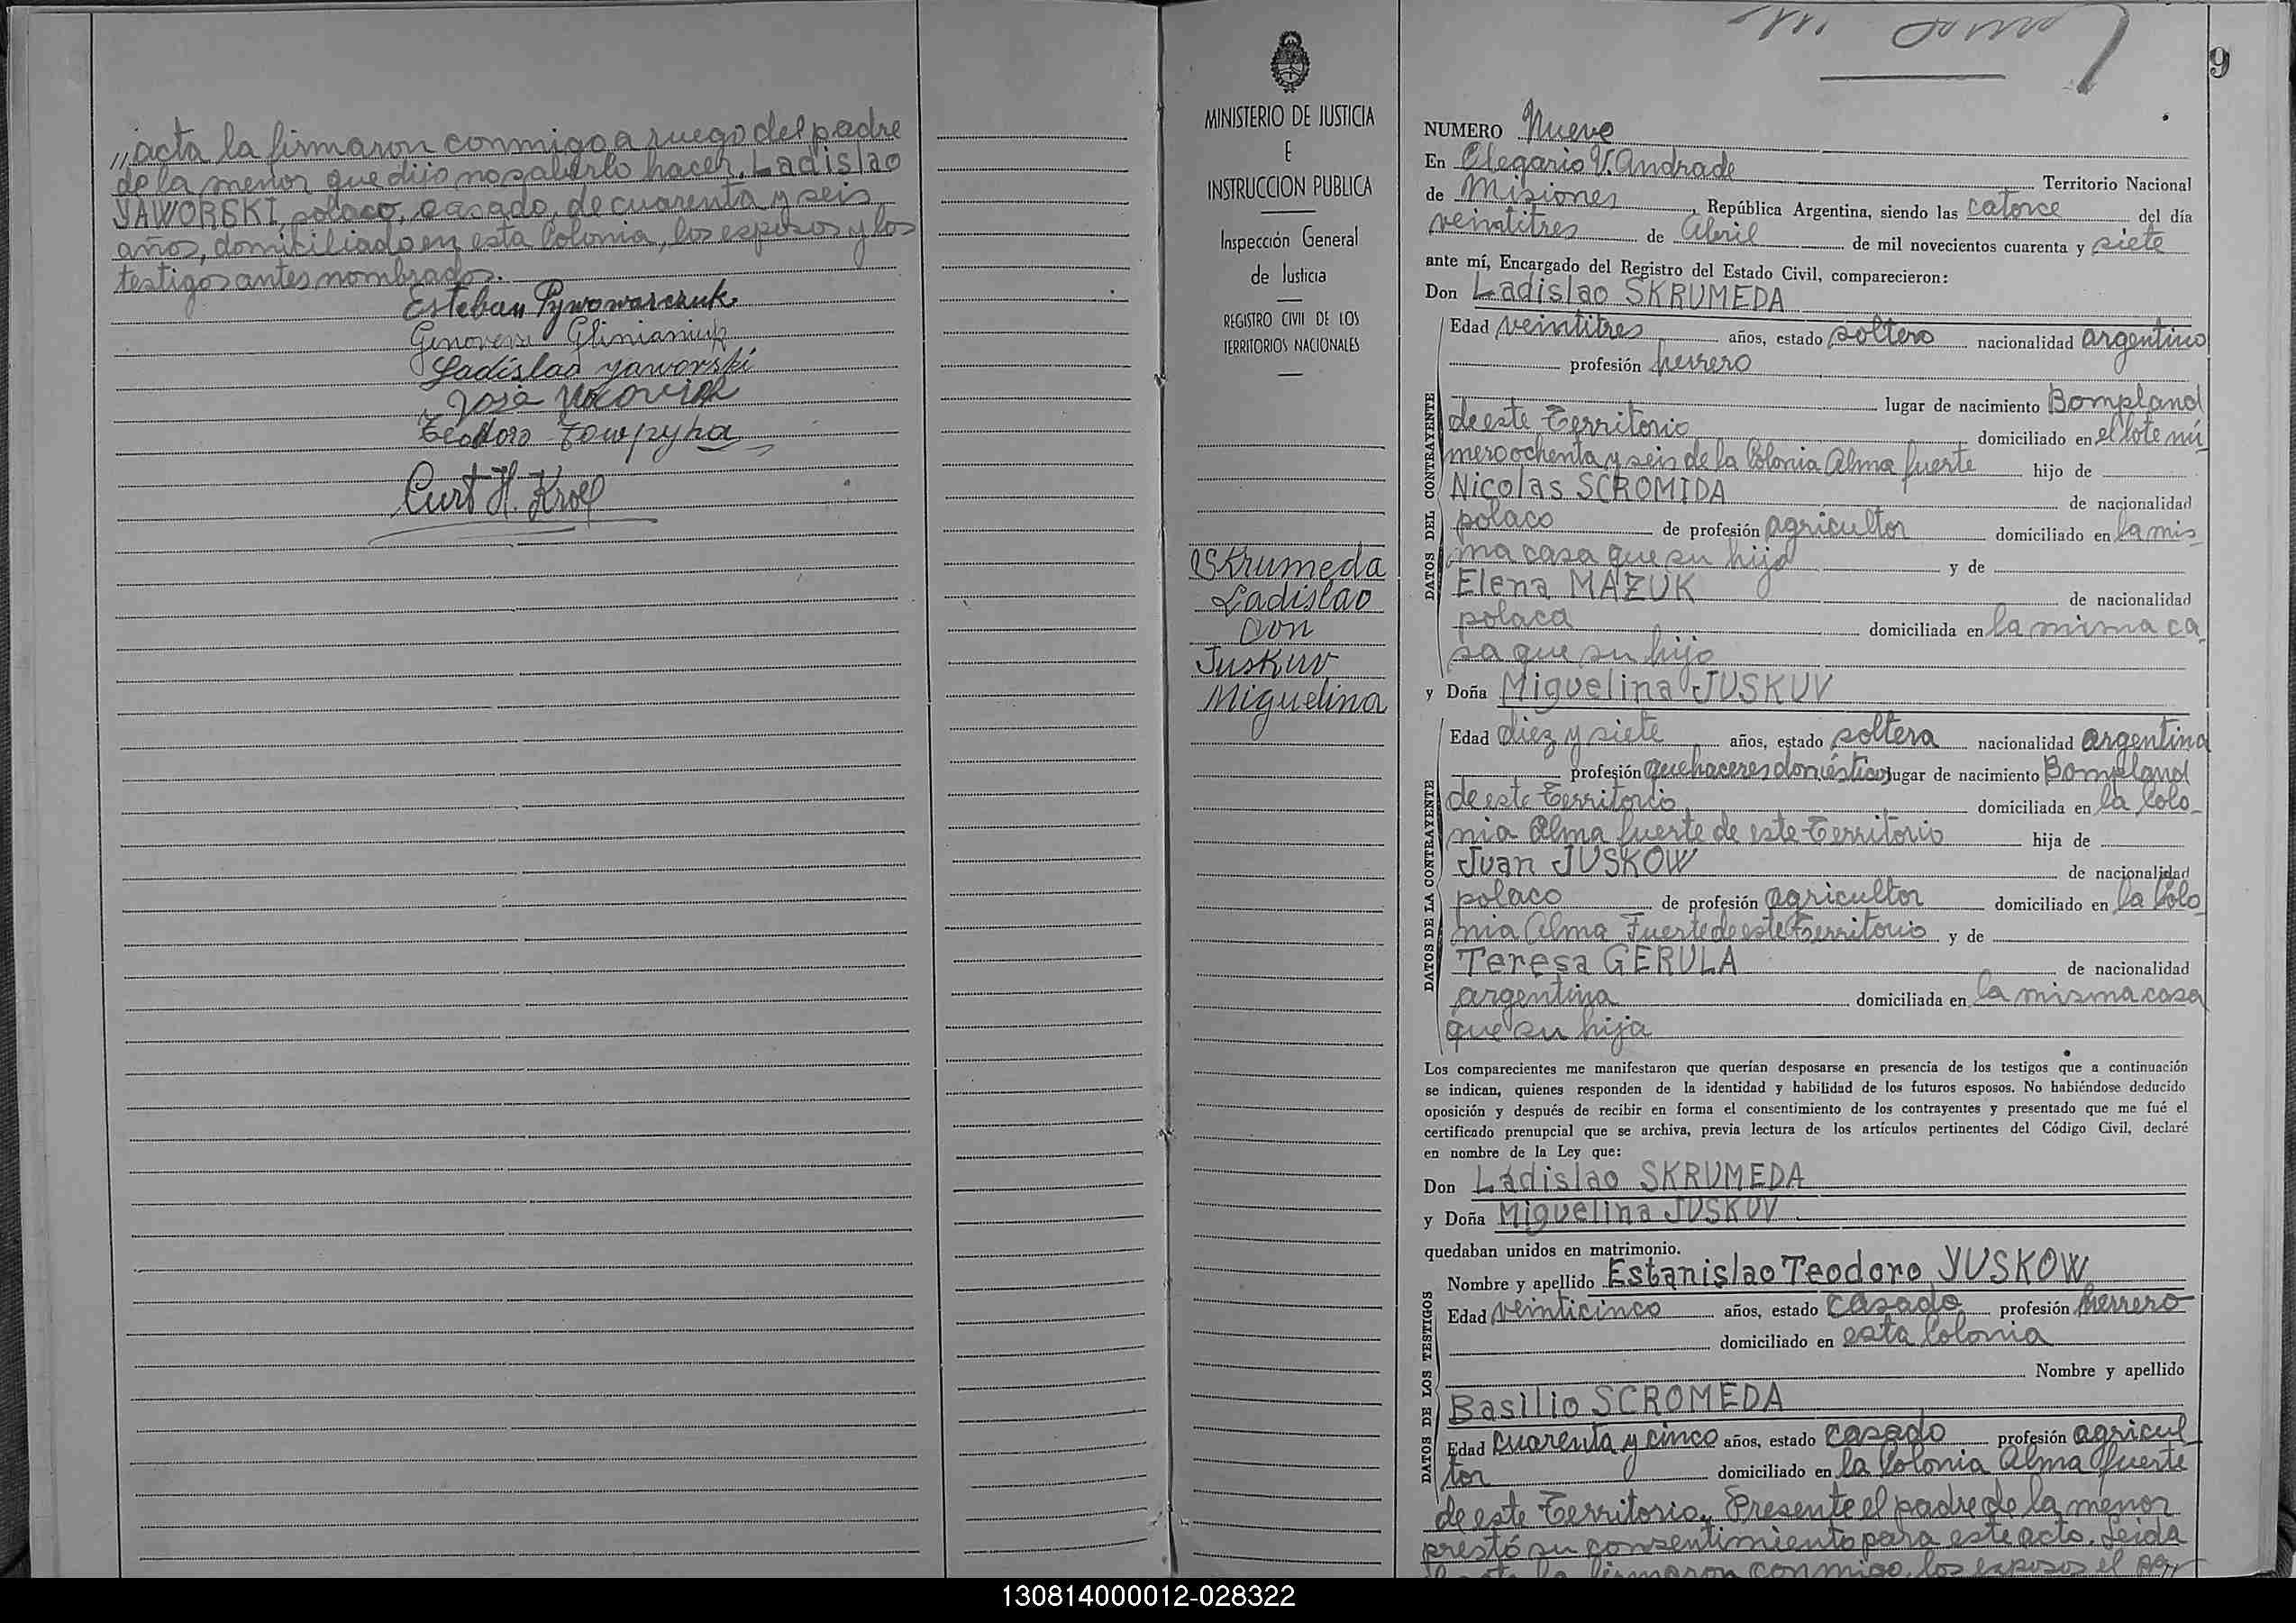 ,, acta la firmaron conmigo a ruego del padre
de la menor que dijo no saberlo hacer, Ladislao
JAWORSKI, polaco, casado, de cuarenta y seis
años, domiciliado en esta Colonia, los esposos y los
testigos antes nombrados.
Esteban Pywowarczuk
Genoveva
Ladislao Jaworski
José
Teodoro
Curt H. Kroll
MINISTERIO DE JUSTICIA
E
INSTRUCCION PUBLICA
Inspección General
de Justicia
REGISTRO CIVIL DE LOS
TERRITORIOS NACIONALES
Skrumeda
Ladislao
con
Juskuv
Miguelina
9
NUMERO Nueve
En Olegario V. Andrade Territorio Nacional
de Misiones, República Argentina, siendo las catorce del día
veintitres de Abril de mil novecientos cuarenta y siete
ante mí, Encargado del Registro del Estado Civil, comparecieron:
Don Ladislao SKRUMEDA
Edad veintitres años, estado soltero nacionalidad argentino
profesión herrero
lugar de nacimiento Bompland
de este Territorio domiciliado en el lote nú
mero ochenta y seis de la Colonia Alma fuerte hijo de
Nicolas SCROMIDA de nacionalidad
polaco de profesión agricultor domiciliado en la mis-
ma casa que su hijo y de
Elena MAZUK de nacionalidad
polaca domiciliada en la misma ca-
sa que su hijo
DATOS DEL CONTRAYENTE
y Doña Miguelina JUSKUV
Edad diez y siete años, estado soltera nacionalidad argentina
profesión quehaceres domésticos lugar de nacimiento Bompland
de este Territorio domiciliada en la Colo-
nia Alma fuerte de este Territorio hija de
Juan JUSKOW de nacionalidad
polaco de profesión agricultor domiciliado en la Colo
nia Alma Fuerte de este Territorio y de
Teresa GERULA de nacionalidad
argentina domiciliada en la misma casa
que su hija
DATOS DE LA CONTRAYENTE
Los comparecientes me manifestaron que querían desposarse en presencia de los testigos que a continuación
se indican, quienes responden de la identidad y habilidad de los futuros esposos. No habiéndose deducido
oposición y después de recibir en forma el consentimiento de los contrayentes y presentado que me fué el
certificado prenupcial que se archiva, previa lectura de los artículos pertinentes del Código Civil, declaré
en nombre de la Ley que:
Don Ladislao SKRUMEDA
y Doña Miguelina JUSKUV
quedaban unidos en matrimonio.
Nombre y apellido Estanislao Teodoro YUSKOW
Edad veinticinco años, estado casado profesión herrero
domiciliado en esta Colonia
Nombre y apellido
Basilio SCROMEDA
Edad cuarenta y cinco años, estado casado profesión agricul
tor domiciliado en la Colonia Alma fuerte
DATOS DE LOS TESTIGOS
de este Territorio. Presente el padre de la menor
prestó su consentimiento para este acto. Leida
la firmaron conmigo, los esposos el pa,,
130814000012-028322